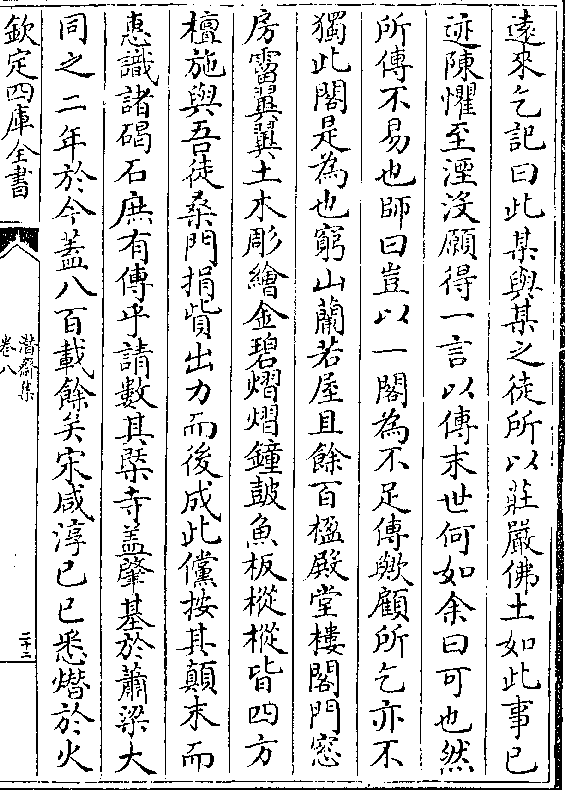 遠來乞記曰此某與某之徒所以莊嚴佛土如此事已
迹陳懼至湮沒願得一言以傳末世何如余曰可也然
所傳不易也師曰豈以一閣為不足傳歟顧所乞亦不
獨此閣是為也窮山蘭若屋且餘百楹殿堂樓閣門窻
房霤翼翼土木彫繪金碧熠熠鐘皷魚板樅樅皆四方
檀施與吾徒桑門捐貲出力而後成此儻按其顛末而
惠識諸碣石庶有傳乎請數其槩寺盖肇基於蕭梁大
同之二年於今蓋八百載餘矣宋咸淳己巳悉燬於火
欽定四庫全書
潛齋集
卷八
三十三